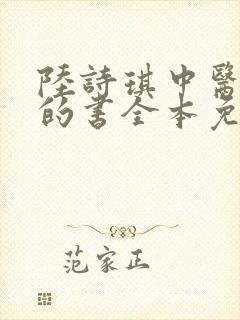 陸詩琪中醫
的書全本免
范家正